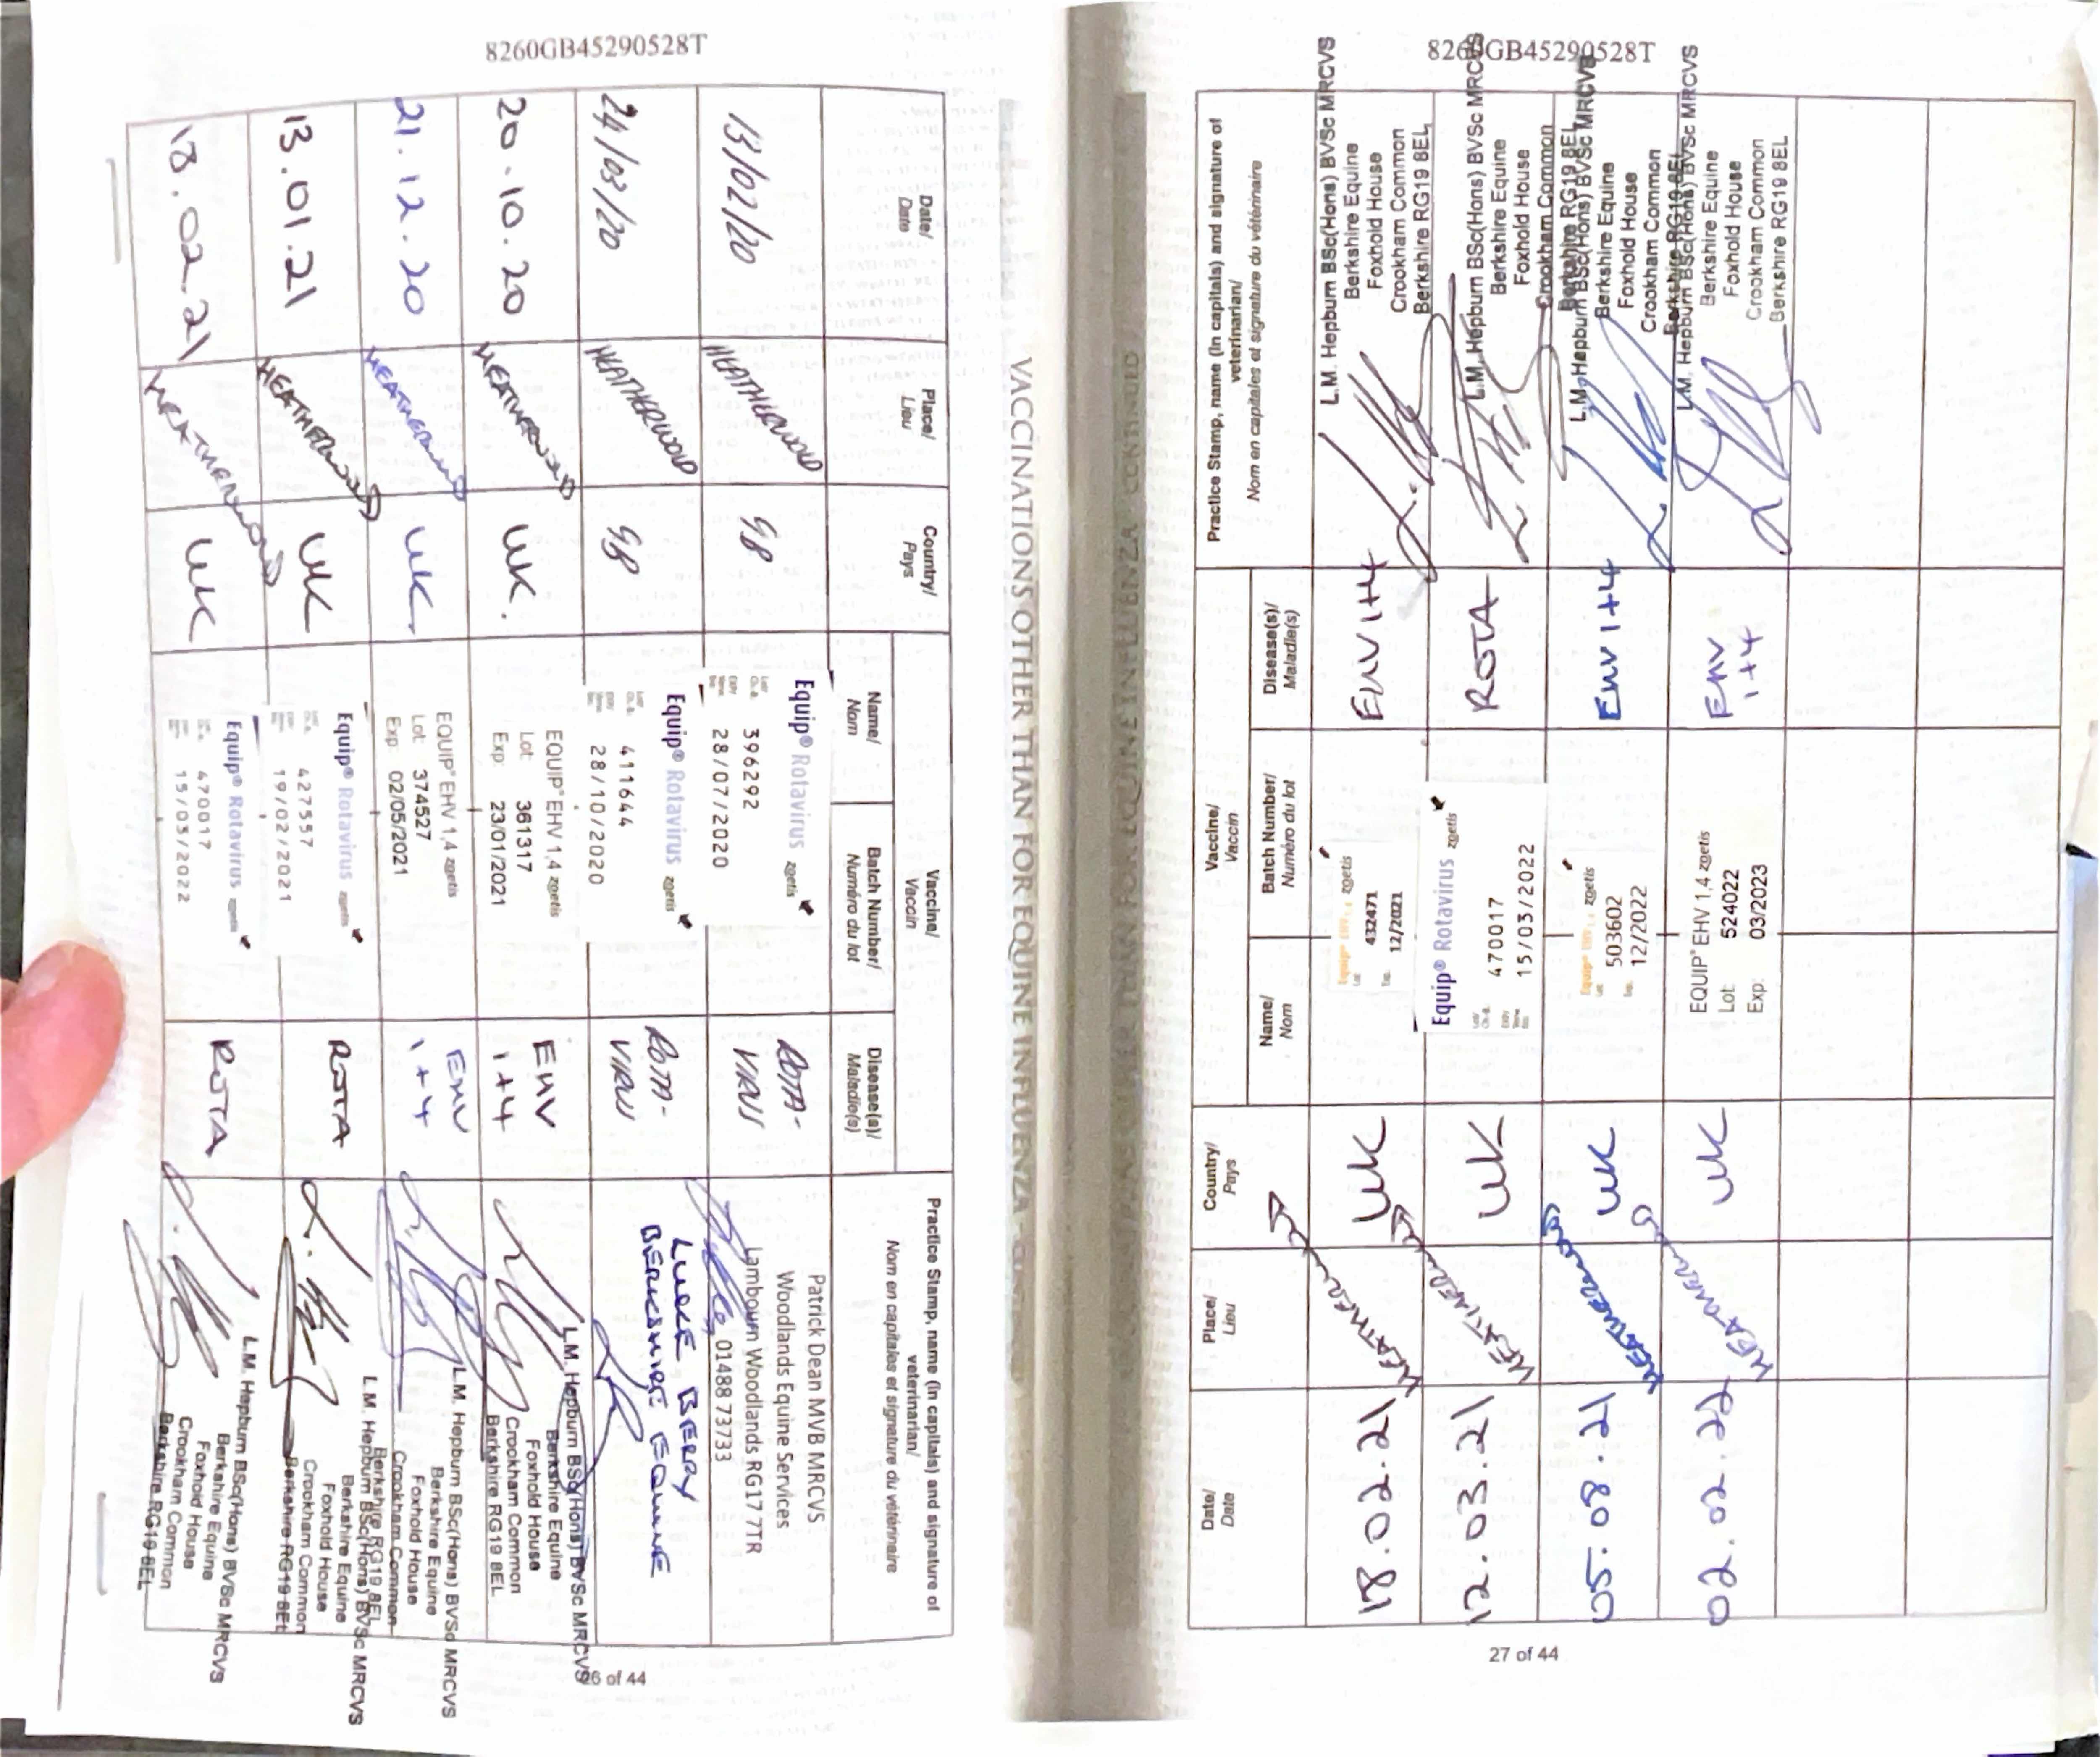 8260GB45290528T
VACCINATIONS OTHER THAN FOR EQUINE INFLUENZA
Date/
Date
Place/
Lieu
Country/
Pays
Vaccine/
Vaccin
Name/
Nom
Batch Number/
Numéro du lot
Disease(s)/
Maladie(s)
Practice Stamp, name (in capitals) and signature of
veterinarian/
Nom en capitales et signature du vétérinaire
13/02/20
HEATHERWOLD
GB
Equip® Rotavirus zoetis
396292
28/07/2020
ROTA-
VIRUS
Patrick Dean MVB MRCVS
Woodlands Equine Services
Lambourn Woodlands RG17 7TR
01488 73733
24/03/20
HEATHERWOLD
GB
Equip® Rotavirus zoetis
411644
28/10/2020
ROTA-
VIRUS
LUKE BERRY
BERKSHIRE EQUINE
20.10.20
HEATHERWOLD
UK.
EQUIP® EHV 1,4 zoetis
Lot: 361317
Exp: 23/01/2021
EHV
1+4
L.M. Hepburn BSc(Hons) BVSc MRCVS
Berkshire Equine
Foxhold House
Crookham Common
Berkshire RG19 8EL
21.12.20
HEATHERWOLD
UK
EQUIP® EHV 1,4 zoetis
Lot: 374527
Exp: 02/05/2021
EHV
1+4
L.M. Hepburn BSc(Hons) BVSc MRCVS
Berkshire Equine
Foxhold House
Crookham Common
Berkshire RG19 8EL
13.01.21
HEATHERWOLD
UK
Equip® Rotavirus zoetis
427557
19/02/2021
ROTA
L.M. Hepburn BSc(Hons) BVSc MRCVS
Berkshire Equine
Foxhold House
Crookham Common
Berkshire RG19 8EL
18.02.21
HEATHERWOLD
UK
Equip® Rotavirus zoetis
470017
15/03/2022
ROTA
L.M. Hepburn BSc(Hons) BVSc MRCVS
Berkshire Equine
Foxhold House
Crookham Common
Berkshire RG19 8EL
26 of 44
8260GB45290528T
Date/
Date
Place/
Lieu
Country/
Pays
Vaccine/
Vaccin
Name/
Nom
Batch Number/
Numéro du lot
Disease(s)/
Maladie(s)
Practice Stamp, name (in capitals) and signature of
veterinarian/
Nom en capitales et signature du vétérinaire
18.02.21
HEATHERWOLD
UK
Equip zoetis
432471
12/2021
EHV 1+4
L.M. Hepburn BSc(Hons) BVSc MRCVS
Berkshire Equine
Foxhold House
Crookham Common
Berkshire RG19 8EL
12.03.21
HEATHERWOLD
UK
Equip® Rotavirus zoetis
470017
15/03/2022
ROTA
L.M. Hepburn BSc(Hons) BVSc MRCVS
Berkshire Equine
Foxhold House
Crookham Common
Berkshire RG19 8EL
05.08.21
HEATHERWOLD
UK
Equip zoetis
503602
12/2022
EHV 1+4
L.M. Hepburn BSc(Hons) BVSc MRCVS
Berkshire Equine
Foxhold House
Crookham Common
Berkshire RG19 8EL
02.02.22
HEATHERWOLD
UK
EQUIP® EHV 1,4 zoetis
Lot: 524022
Exp: 03/2023
EHV
1+4
L.M. Hepburn BSc(Hons) BVSc MRCVS
Berkshire Equine
Foxhold House
Crookham Common
Berkshire RG19 8EL
27 of 44